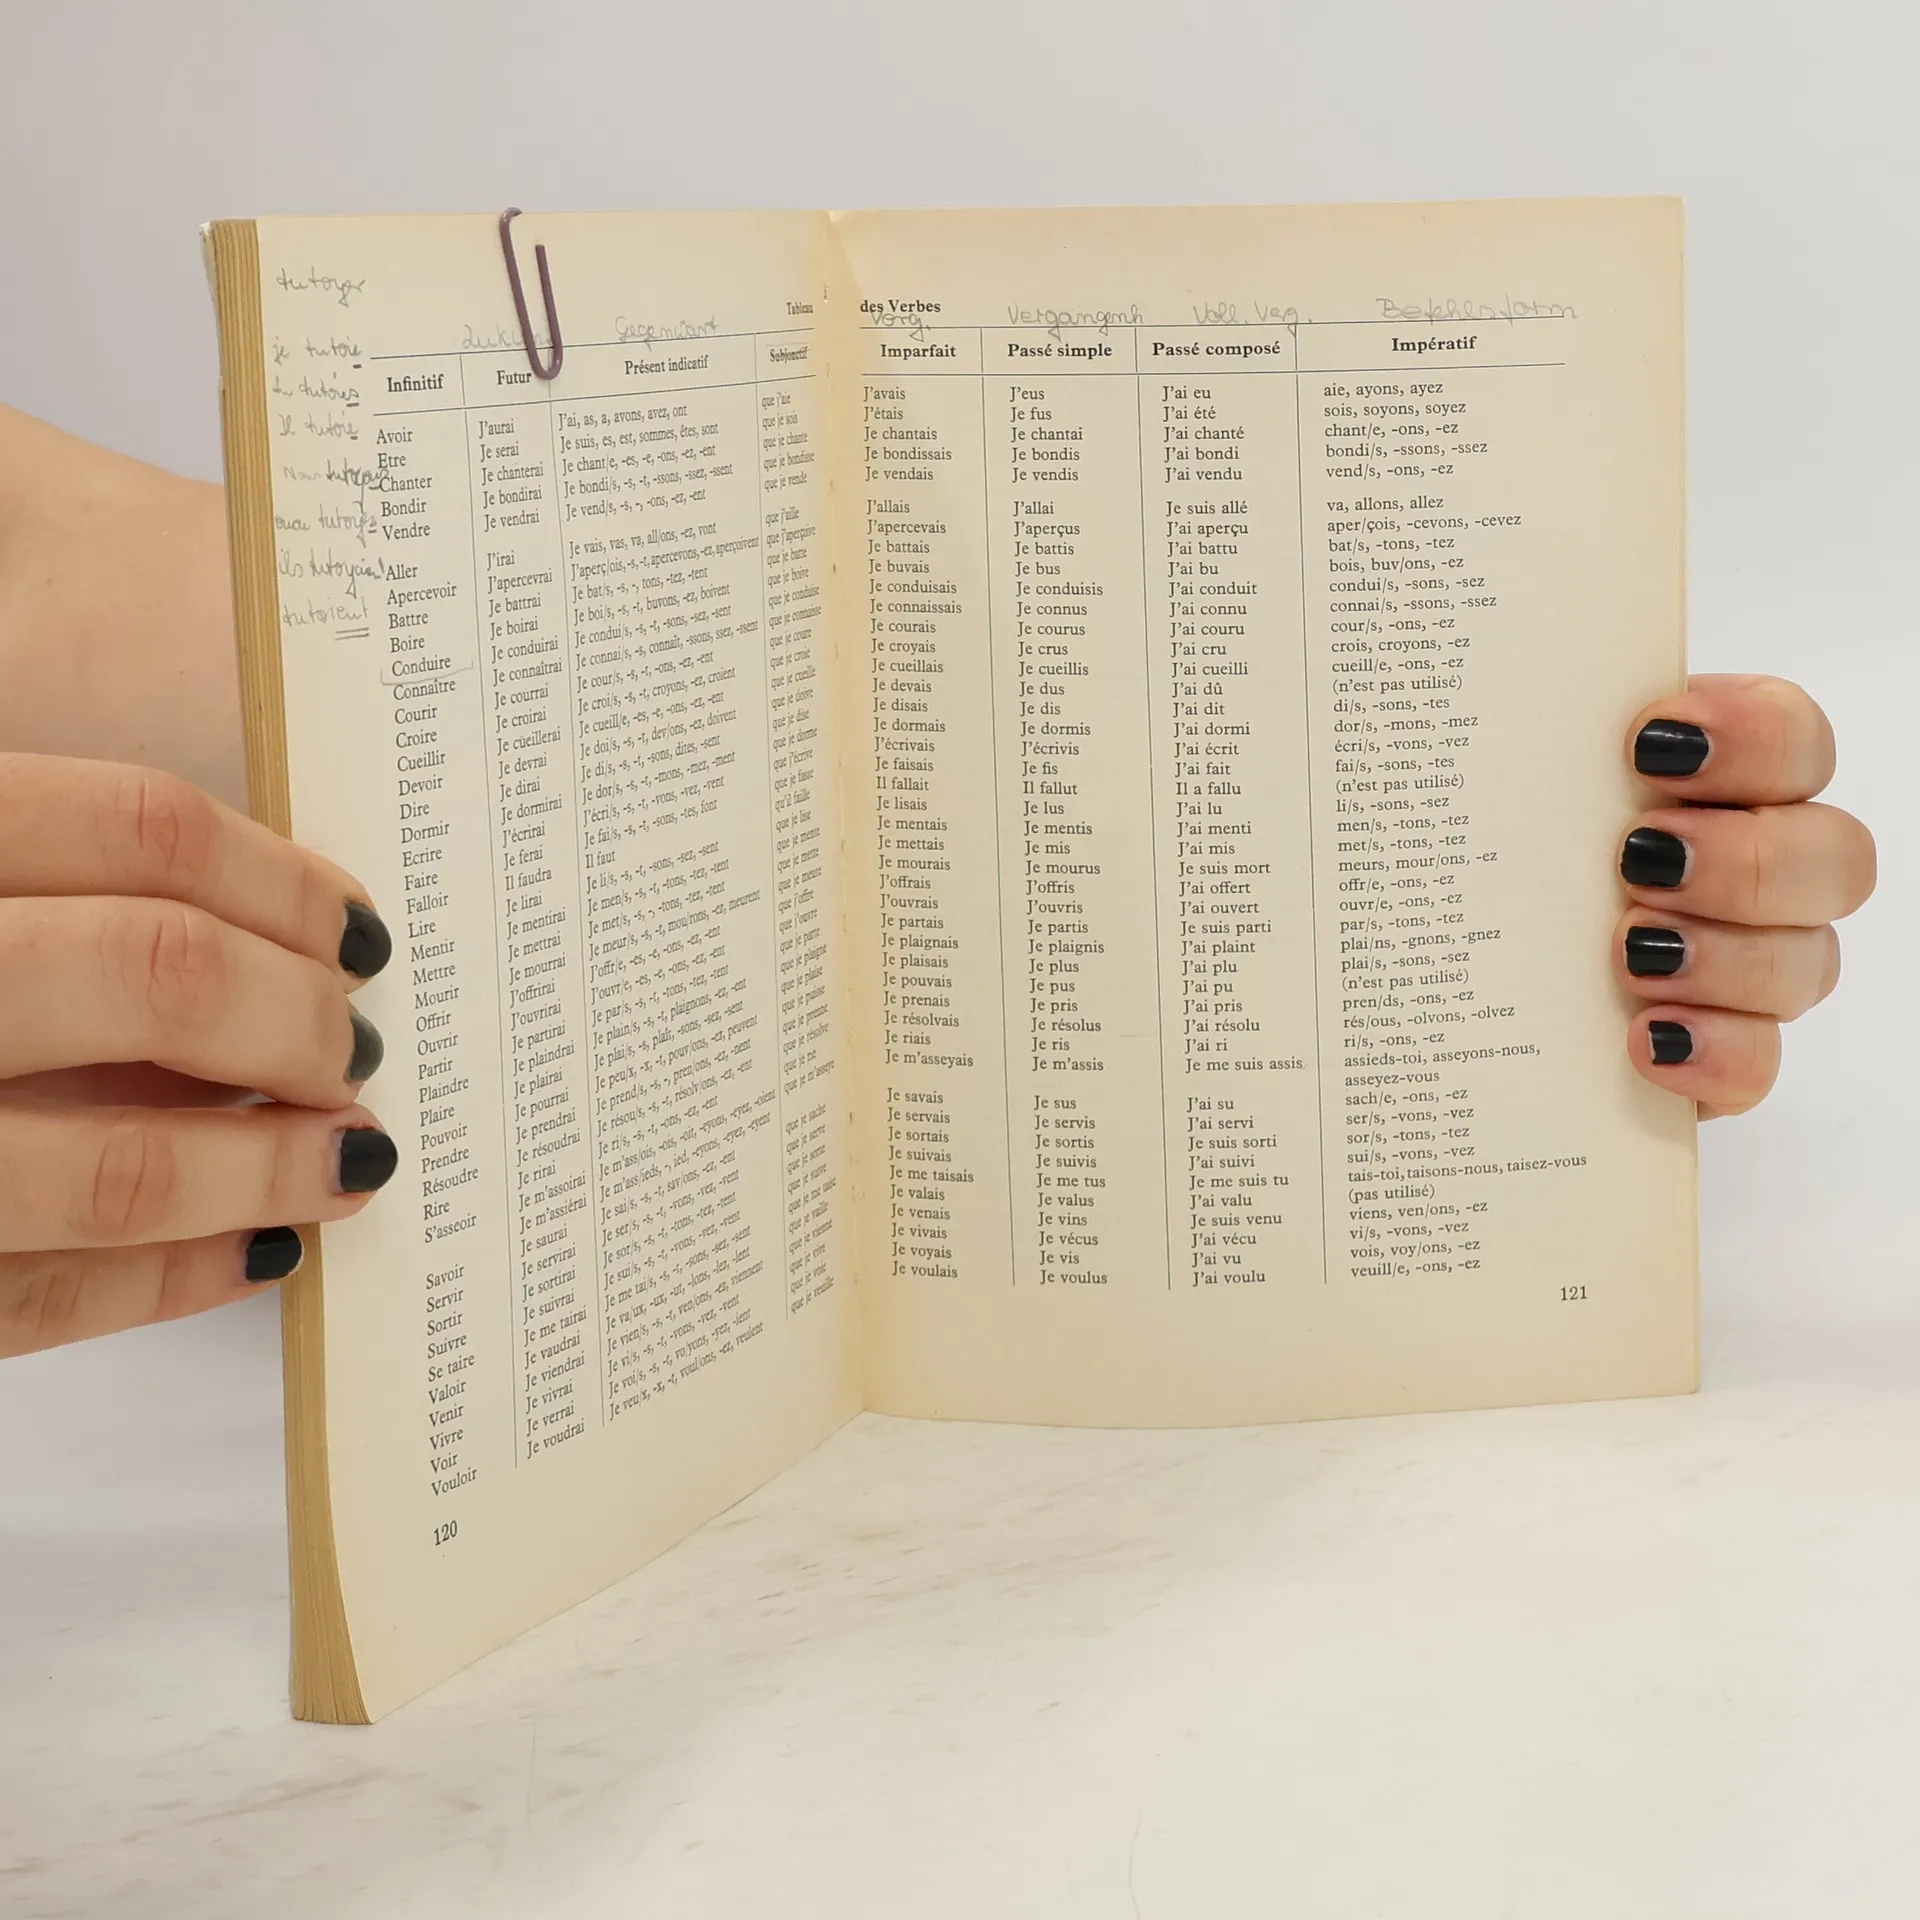 tutoyer
je tutoie
tu tutoies
Il tutoie
Nous tutoyons
tutoyez
ils tutoyaient
tutoient
Gegenwart
Tableau
Infinitif Futur Présent indicatif Subjonctif
Avoir J'aurai J'ai, as, a, avons, avez, ont que j'aie
Etre Je serai Je suis, es, est, sommes, êtes, sont que je sois
Chanter Je chanterai Je chant/e, -es, -e, -ons, -ez, -ent que je chante
Bondir Je bondirai Je bondi/s, -s, -t, -ssons, -ssez, -ssent que je bondisse
Vendre Je vendrai Je vend/s, -s, -, -ons, -ez, -ent que je vende
Aller J'irai Je vais, vas, va, all/ons, -ez, vont que j'aille
Apercevoir J'apercevrai J'aperç/ois, -s, -t, apercevons, -ez, aperçoivent que j'aperçoive
Battre Je battrai Je bat/s, -s, -, tons, -tez, -tent que je batte
Boire Je boirai Je boi/s, -s, -t, buvons, -ez, boivent que je boive
Conduire Je conduirai Je condui/s, -s, -t, -sons, -sez, -sent que je conduise
Connaître Je connaîtrai Je connai/s, -s, connaît, -ssons, ssez, -ssent que je connaisse
Courir Je courrai Je cour/s, -s, -t, -ons, -ez, -ent que je coure
Croire Je croirai Je croi/s, -s, -t, croyons, -ez, croient que je croie
Cueillir Je cueillerai Je cueill/e, -es, -e, -ons, -ez, -ent que je cueille
Devoir Je devrai Je doi/s, -s, -t, dev/ons, -ez, doivent que je doive
Dire Je dirai Je di/s, -s, -t, -sons, dites, -sent que je dise
Dormir Je dormirai Je dor/s, -s, -t, -mons, -mez, -ment que je dorme
Ecrire J'écrirai J'écri/s, -s, -t, -vons, -vez, -vent que j'écrive
Faire Je ferai Je fai/s, -s, -t, -sons, -tes, font que je fasse
Falloir Il faudra Il faut qu'il faille
Lire Je lirai Je li/s, -s, -t, -sons, -sez, -sent que je lise
Mentir Je mentirai Je men/s, -s, -t, -tons, -tez, -tent que je mente
Mettre Je mettrai Je met/s, -s, -, -tons, -tez, -tent que je mette
Mourir Je mourrai Je meur/s, -s, -t, mou/rons, -ez, meurent que je meure
Offrir J'offrirai J'offr/e, -es, -e, -ons, -ez, -ent que j'offre
Ouvrir J'ouvrirai J'ouvr/e, -es, -e, -ons, -ez, -ent que j'ouvre
Partir Je partirai Je par/s, -s, -t, -tons, -tez, -tent que je parte
Plaindre Je plaindrai Je plain/s, -s, -t, plaignons, -ez, -ent que je plaigne
Plaire Je plairai Je plai/s, -s, plaît, -sons, -sez, -sent que je plaise
Pouvoir Je pourrai Je peu/x, -x, -t, pouv/ons, -ez, peuvent que je puisse
Prendre Je prendrai Je prend/s, -s, -, pren/ons, -ez, -nent que je prenne
Résoudre Je résoudrai Je résou/s, -s, -t, résolv/ons, -ez, -ent que je résolve
Rire Je rirai Je ri/s, -s, -t, -ons, -ez, -ent que je rie
S'asseoir Je m'assoirai Je m'ass/ois, -ois, -oit, -eyons, -eyez, -oient que je m'asseye
Je m'assiérai Je m'ass/ieds, -, ied, -eyons, -eyez, -eyent
Savoir Je saurai Je sai/s, -s, -t, sav/ons, -ez, -ent que je sache
Servir Je servirai Je ser/s, -s, -t, -vons, -vez, -vent que je serve
Sortir Je sortirai Je sor/s, -s, -t, -tons, -tez, -tent que je sorte
Suivre Je suivrai Je sui/s, -s, -t, -vons, -vez, -vent que je suive
Se taire Je me tairai Je me tai/s, -s, -t, -sons, -sez, -sent que je me taise
Valoir Je vaudrai Je va/ux, -ux, -ut, -lons, -lez, -lent que je vaille
Venir Je viendrai Je vien/s, -s, -t, ven/ons, -ez, viennent que je vienne
Vivre Je vivrai Je vi/s, -s, -t, -vons, -vez, -vent que je vive
Voir Je verrai Je voi/s, -s, -t, vo/yons, -yez, -ient que je voie
Vouloir Je voudrai Je veu/x, -x, -t, voul/ons, -ez, veulent que je veuille
120
des Verbes
Vorg. Vergangenh Voll. Verg. Befehlsform
Imparfait Passé simple Passé composé Impératif
J'avais J'eus J'ai eu aie, ayons, ayez
J'étais Je fus J'ai été sois, soyons, soyez
Je chantais Je chantai J'ai chanté chant/e, -ons, -ez
Je bondissais Je bondis J'ai bondi bondi/s, -ssons, -ssez
Je vendais Je vendis J'ai vendu vend/s, -ons, -ez
J'allais J'allai Je suis allé va, allons, allez
J'apercevais J'aperçus J'ai aperçu aper/çois, -cevons, -cevez
Je battais Je battis J'ai battu bat/s, -tons, -tez
Je buvais Je bus J'ai bu bois, buv/ons, -ez
Je conduisais Je conduisis J'ai conduit condui/s, -sons, -sez
Je connaissais Je connus J'ai connu connai/s, -ssons, -ssez
Je courais Je courus J'ai couru cour/s, -ons, -ez
Je croyais Je crus J'ai cru crois, croyons, -ez
Je cueillais Je cueillis J'ai cueilli cueill/e, -ons, -ez
Je devais Je dus J'ai dû (n'est pas utilisé)
Je disais Je dis J'ai dit di/s, -sons, -tes
Je dormais Je dormis J'ai dormi dor/s, -mons, -mez
J'écrivais J'écrivis J'ai écrit écri/s, -vons, -vez
Je faisais Je fis J'ai fait fai/s, -sons, -tes
Il fallait Il fallut Il a fallu (n'est pas utilisé)
Je lisais Je lus J'ai lu li/s, -sons, -sez
Je mentais Je mentis J'ai menti men/s, -tons, -tez
Je mettais Je mis J'ai mis met/s, -tons, -tez
Je mourais Je mourus Je suis mort meurs, mour/ons, -ez
J'offrais J'offris J'ai offert offr/e, -ons, -ez
J'ouvrais J'ouvris J'ai ouvert ouvr/e, -ons, -ez
Je partais Je partis Je suis parti par/s, -tons, -tez
Je plaignais Je plaignis J'ai plaint plai/ns, -gnons, -gnez
Je plaisais Je plus J'ai plu plai/s, -sons, -sez
Je pouvais Je pus J'ai pu (n'est pas utilisé)
Je prenais Je pris J'ai pris pren/ds, -ons, -ez
Je résolvais Je résolus J'ai résolu rés/ous, -olvons, -olvez
Je riais Je ris J'ai ri ri/s, -ons, -ez
Je m'asseyais Je m'assis Je me suis assis assieds-toi, asseyons-nous,
asseyez-vous
Je savais Je sus J'ai su sach/e, -ons, -ez
Je servais Je servis J'ai servi ser/s, -vons, -vez
Je sortais Je sortis Je suis sorti sor/s, -tons, -tez
Je suivais Je suivis J'ai suivi sui/s, -vons, -vez
Je me taisais Je me tus Je me suis tu tais-toi, taisons-nous, taisez-vous
Je valais Je valus J'ai valu (pas utilisé)
Je venais Je vins Je suis venu viens, ven/ons, -ez
Je vivais Je vécus J'ai vécu vi/s, -vons, -vez
Je voyais Je vis J'ai vu vois, voy/ons, -ez
Je voulais Je voulus J'ai voulu veuill/e, -ons, -ez
121